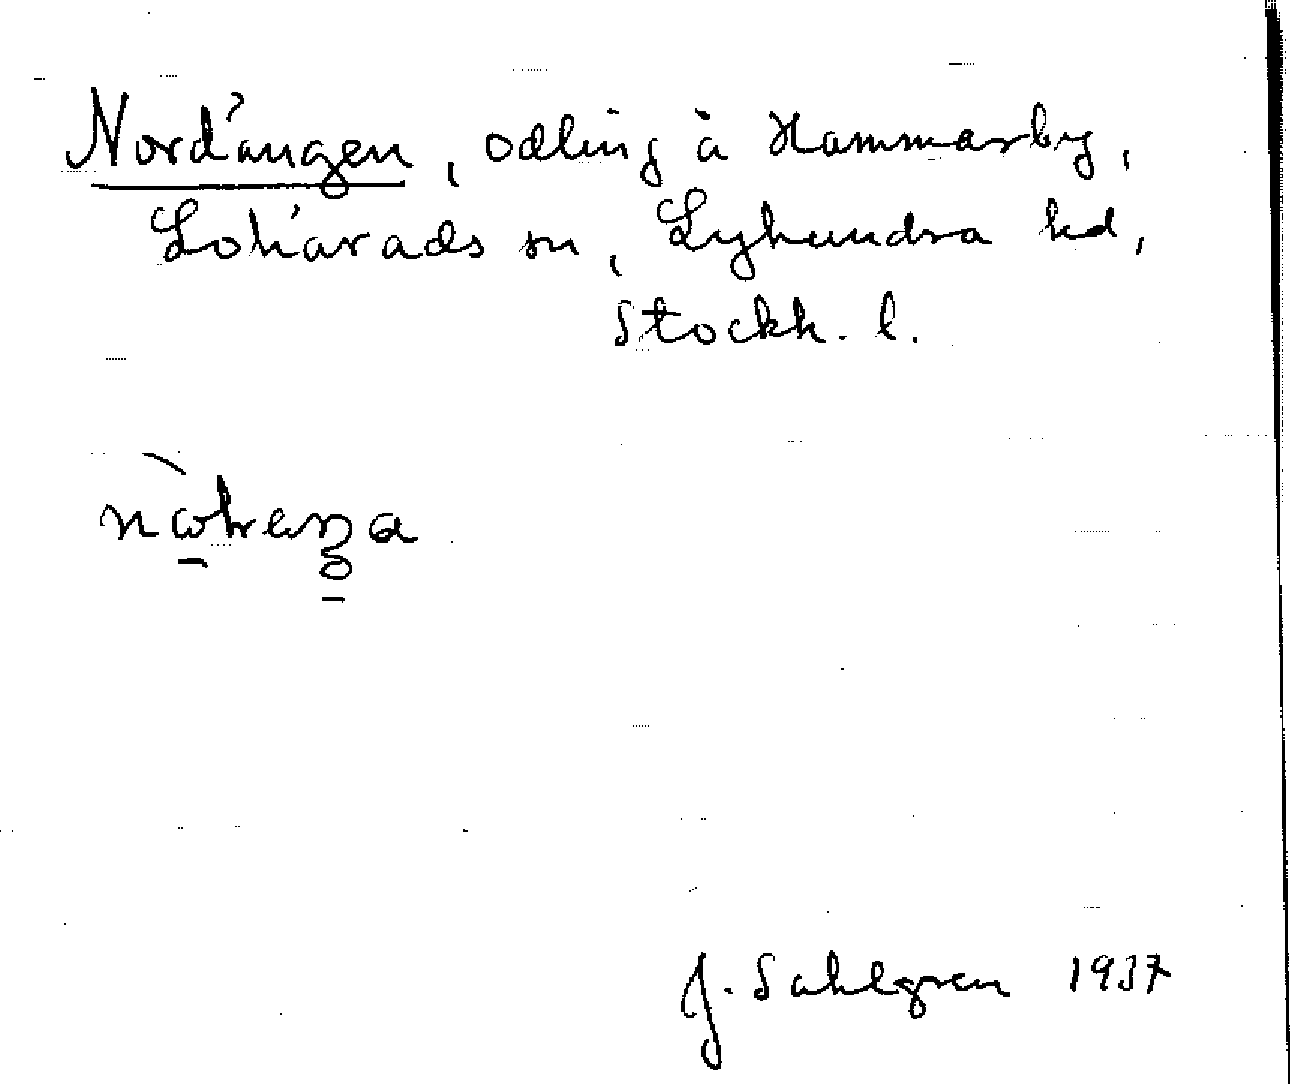 Nordängen, odling å Hammarby,
Lohärads sn, Lyhundra hd,
Stockh. l.
J. Sahlgren 1937